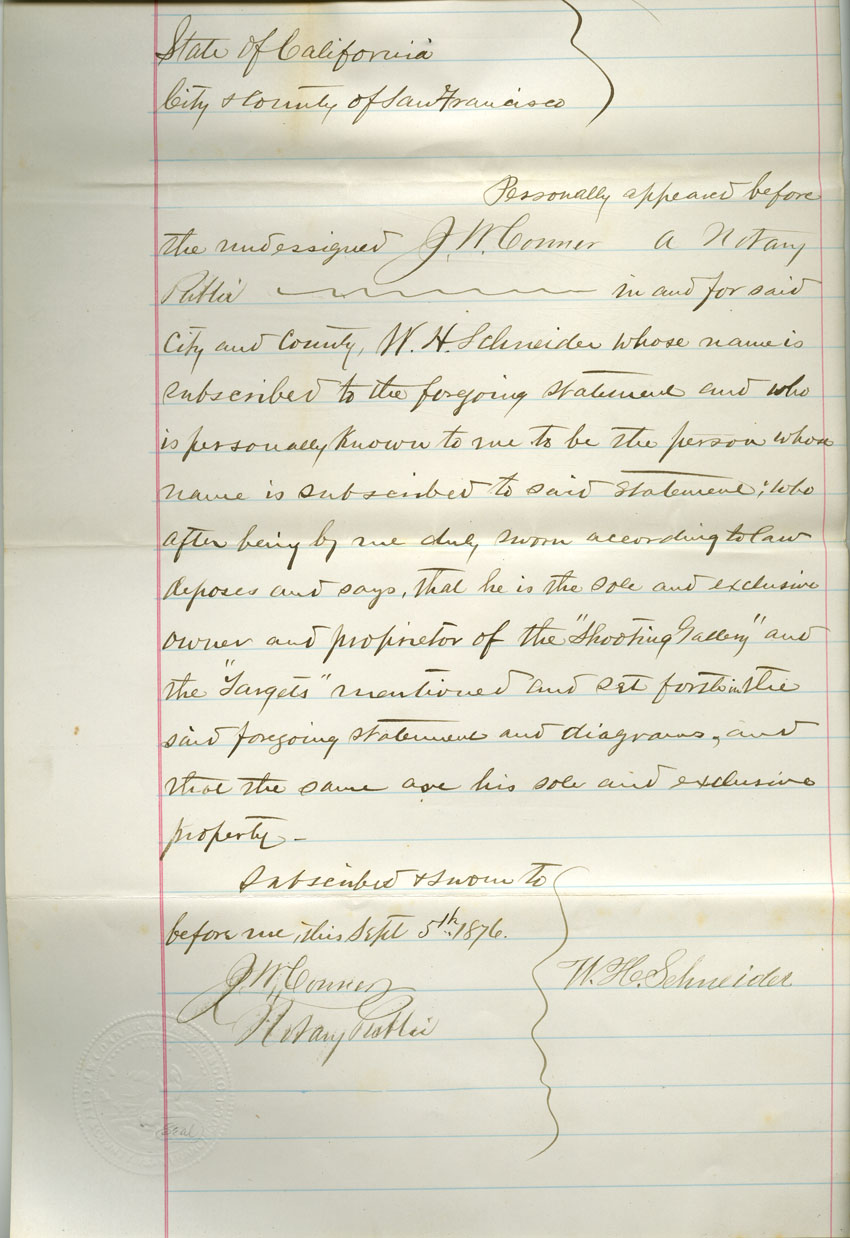 State of California
City & County of San Francisco
Personally appeared before
the undersigned J. W. Conner a Notary
Public in and for said
City and County, W. H. Schneider whose name is
subscribed to the forgoing statement and who
is personally known to me to be the person whose
name is subscribed to said statement; who
after being by me duly sworn according to law
deposes and says, that he is the sole and exclusive
owner and proprietor of the "Shooting Gallery" and
the "Targets" mentioned and set forth in the
said foregoing statement and diagrams, and
that the same are his sole and exclusive
property.—
Subscribed & sworn to
before me, this Sept 5th. 1876.
J. W. Conner
Notary Public
W. H. Schneider
(Seal)